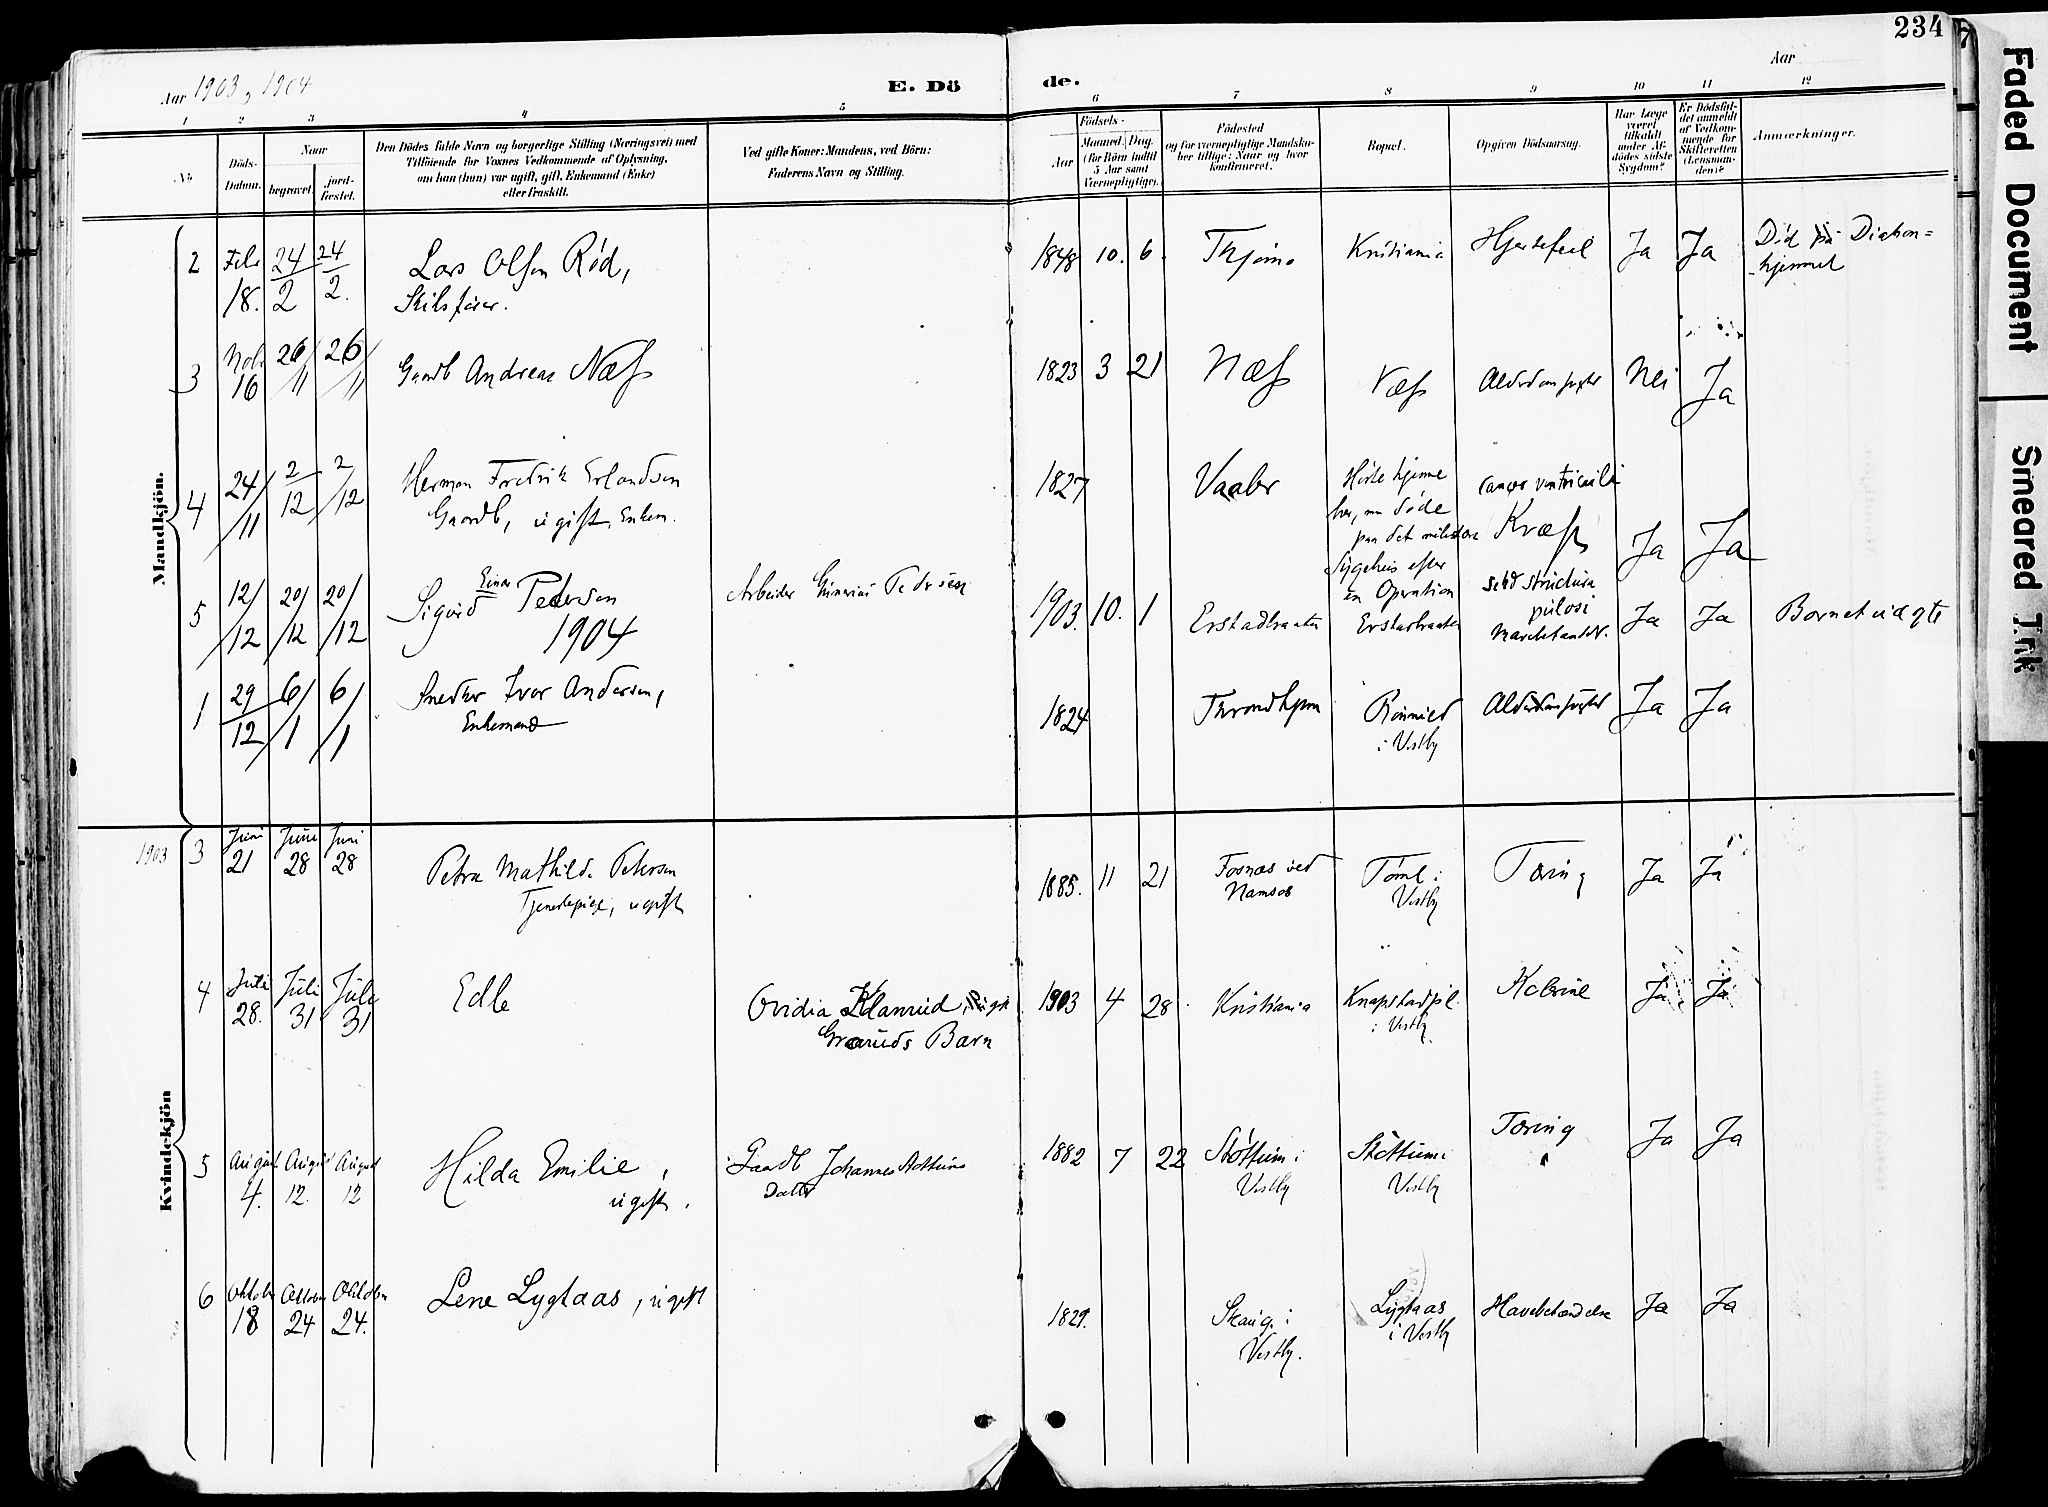 234
Aar 1903, 1904
E. Döde.
Aar
1 2 3 4 5 6 7 8 9 10 11 12
No.
Döds-Datum.
Naar
begravet.
jord-fæstet.
Den Dödes fulde Navn og borgerlige Stilling (Næringsvei) med
Tilföiende for Voxnes Vedkommende af Oplysning,
om han (hun) var ugift, gift, Enkemand (Enke)
eller fraskilt.
Ved gifte Koner: Mandens, ved Börn:
Faderens Navn og Stilling.
Födsels-
Aar
Maaned. Dag.
(for Börn indtil
5 Aar samt
Værnepligtige).
Födested
og for værnepligtige Mandskaber tillige: Naar og hvor
konfirmeret.
Bopæl.
Opgiven Dödsaarsag.
Har Læge
været
tilkaldt
under Afdödes sidste
Sygdom?
Er Dödsfaldet anmeldt
af Vedkommende for
Skifteretten
(Lensmanden)?
Anmærkninger.
Mandkjön.
2 Febr 18. 24/2 24/2. Lars Olsen Rød, 1848 10. 6. Thjømø Kristiania Hjertefeil Ja Ja Død på Diakon=
Skibsfører. -hjemmet
3 Nobr 16 26/11 26/11 Gaardb Andreas Næss 1823 3 21 Næss Næss Alderdomssygdom Nei Ja
4 24/11 2/12 2/12 Herman Fredrik Erlandsen 1827 Vaaler Hørte hjemme cancer ventriculi
Gaardb, ugift, Enkem. her, men døde Kræft Ja Ja
paa det militære
Sygehus efter
en Operation
5 12/12 20/12 20/12 Sigurd Einar Pedersen Arbeider Pedersen 1903. 10. 1 Erstadbraaten Erstadbraaten Ja Ja Barnet uægte
1904
1 29/12 6/1 6/1 Snedker Ivar Andersen, 1824 Throndhjem i Vestby Alderdomssygdom Ja Ja
Enkemand
Kvindekjön
1903 3 Juni 21 Juni 28 Juni 28 Petra Mathilde Petersen 1885. 11 21 Fosnæs ved Namsos i Vestby Tæring Ja Ja
Tjenestepige, ugift
4 Juli 28. Juli 31 Juli 31 Edle Ovidia Klanrud, 1903 4 28 Kristiania Knapstadpl. i Vestby Kolerine Ja Ja
Graaruds Barn
5 August 4. August 12. August 12 Hilda Emilie, Gaardb Johannes Støttums 1882 7 22 Støttum i Vestby Støttum i Vestby Tæring Ja Ja
ugift. Datter
6 Oktober 18 Oktober 24 Oktober 24. Lene Lygtaas, ugift 1829. Skaug i Vestby. Lygtaas i Vestby Mavebetændelse Ja Ja
Faded Document
Smeared Ink